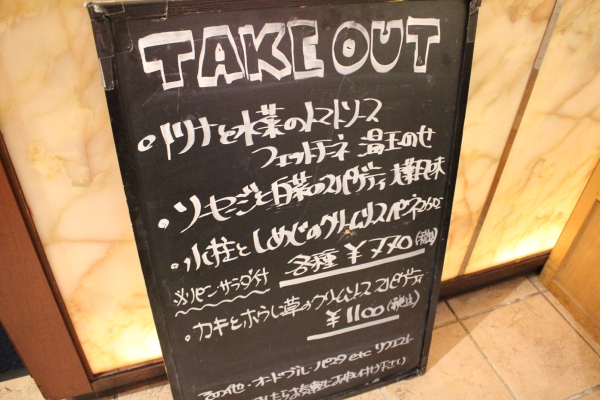 TAKE OUT
・ツナと水菜のトマトソース
フェットチーネ 温玉のせ
・ソーセージと白菜のスパゲティ
・小柱としめじのクリームソース
各種 ¥770(税込)
※パン・サラダ付
・カキとホウレン草のクリームソース スパゲティ
¥1100(税込)
その他・オードブル・パスタ etc リクエスト